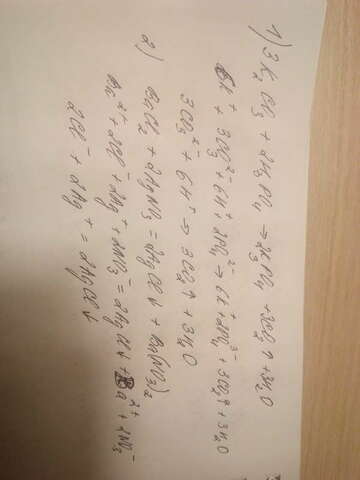 1) 3K₂CO₃ + 2H₃PO₄ → 2K₃PO₄ + 3CO₂↑ + 3H₂O
6K⁺ + 3CO₃²⁻ + 6H⁺ + 2PO₄³⁻ → 6K⁺ + 2PO₄³⁻ + 3CO₂↑ + 3H₂O
3CO₃²⁻ + 6H⁺ → 3CO₂↑ + 3H₂O
2) BaCl₂ + 2AgNO₃ = 2AgCl↓ + Ba(NO₃)₂
Ba²⁺ + 2Cl⁻ + 2Ag⁺ + 2NO₃⁻ = 2AgCl↓ + Ba²⁺ + 2NO₃⁻
2Cl⁻ + 2Ag⁺ = 2AgCl↓